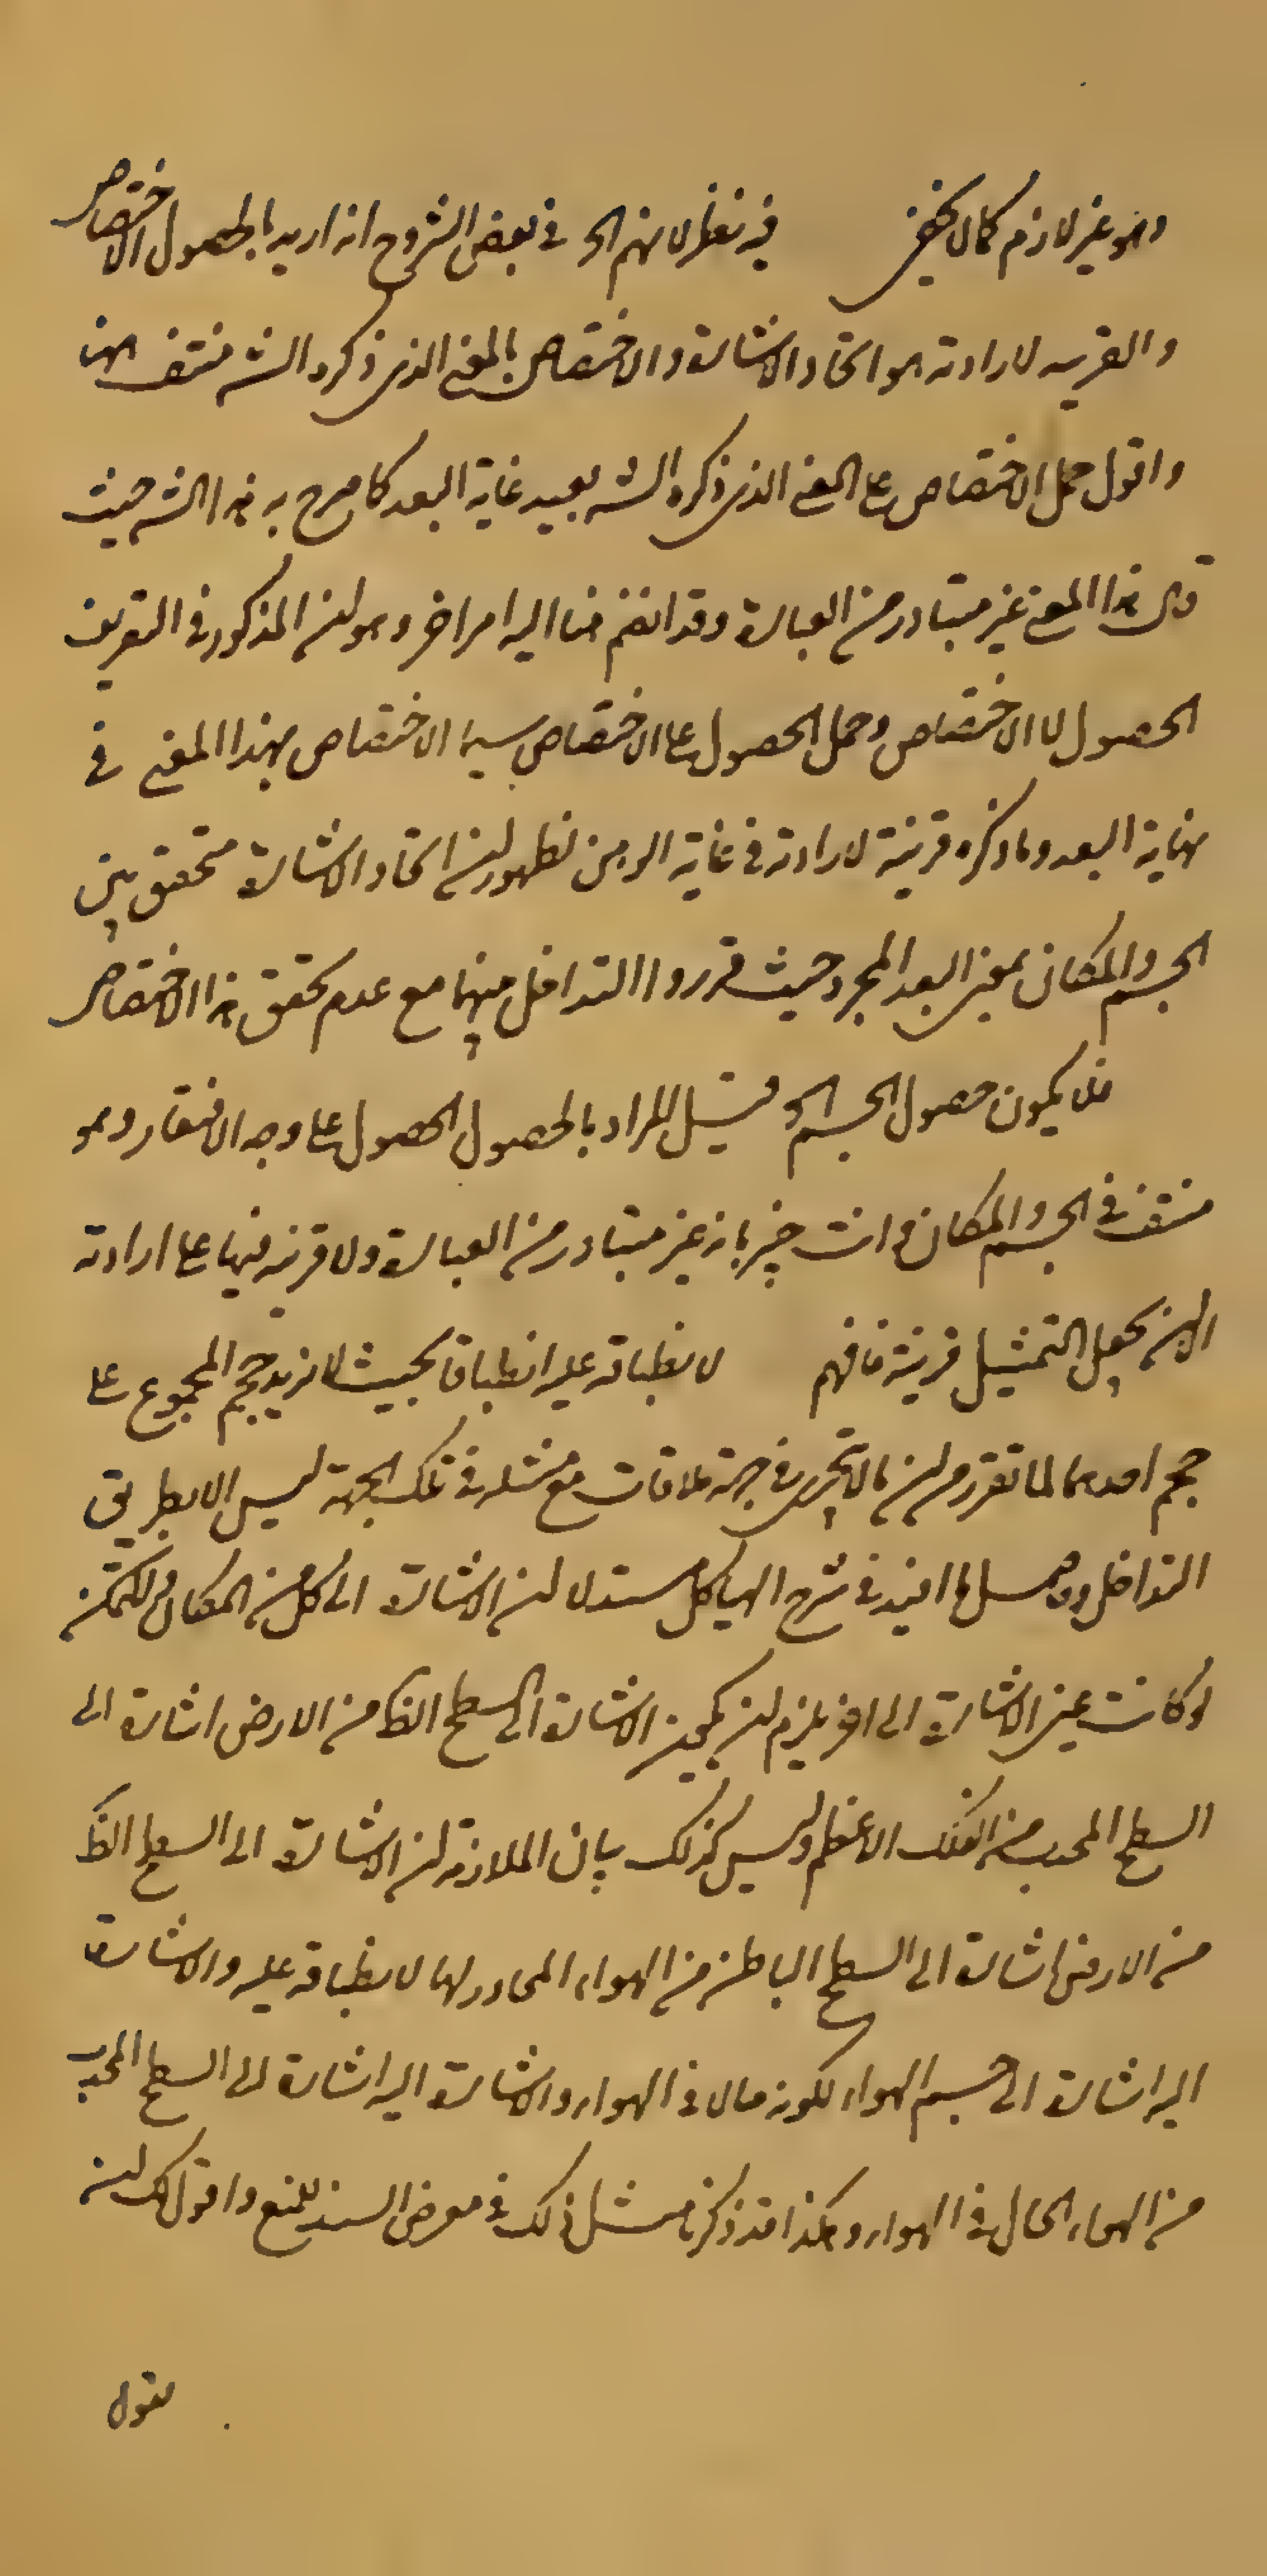 وهو غير لازم كما لا يخفى فيه نظر لانهم الخ في بعض الشروح انه اريد بالحصول الاختصاص
والقرينه لارادته هو اتحاد الاشارة والاختصاص بالمعنى الذى ذكره الشه منتف ههنا
واقول حمل الاختصاص على المعنى الذى ذكره الشه بعيد غاية البعد كما صرح به هذا الشه حيث
قال هذا المعنى غير متبادر من العبارة وقد انضم هنا اليه امر اخر وهو ان المذكور في التعريف
الحصول لا الاختصاص وحمل الحصول على الاختصاص سيما الاختصاص بهذا المعنى في
نهاية البعد وما ذكره قرينة لارادته في غاية الوهن لظهور ان اتحاد الاشارة متحقق بين
الجسم والمكان بمعنى البعد المجرد حيث قرروا التداخل بينهما مع عدم تحقق هذا الاختصاص
فلا يكون حصول الجسم الخ قيل المراد بالحصول الحصول على وجه الافتقار وهو
منتف في الجسم والمكان وانت خبير بانه غير متبادر من العبارة ولا قرينه فيها على ارادته
الا ان يجعل التمثيل قرينة فافهم لانطباقه عليه انطباقا بحيث لا يزيد حجم المجموع على
حجم احدهما لما تقرر من ان ما لا يتجزى في جهة ملاقات مع مثله في تلك الجهة ليس الا بطريق
التداخل في شرح الهياكل مستدلا ان الاشارة الى كل من المكان والمتمكن
لو كانت عين الاشارة الى الاخر يلزم ان يكون الاشارة الى السطح الظا من الارض اشارة الى
السطح المحدب من الفلك الاعظم وليس كذلك بيان الملازمة ان الاشارة الى السطح الظا
من الارض اشارة الى السطح الباطن من الهواء المجاور لها لانطباقه عليه والاشارة
اليه اشارة الى جسم الهواء لكونه حالا في الهواء والاشارة اليه اشارة الى السطح المحدب
من الهواء الحال في الهواء وهكذا قد ذكرنا مثل ذلك في معرض السند للمنع واقول لك ان
نقول